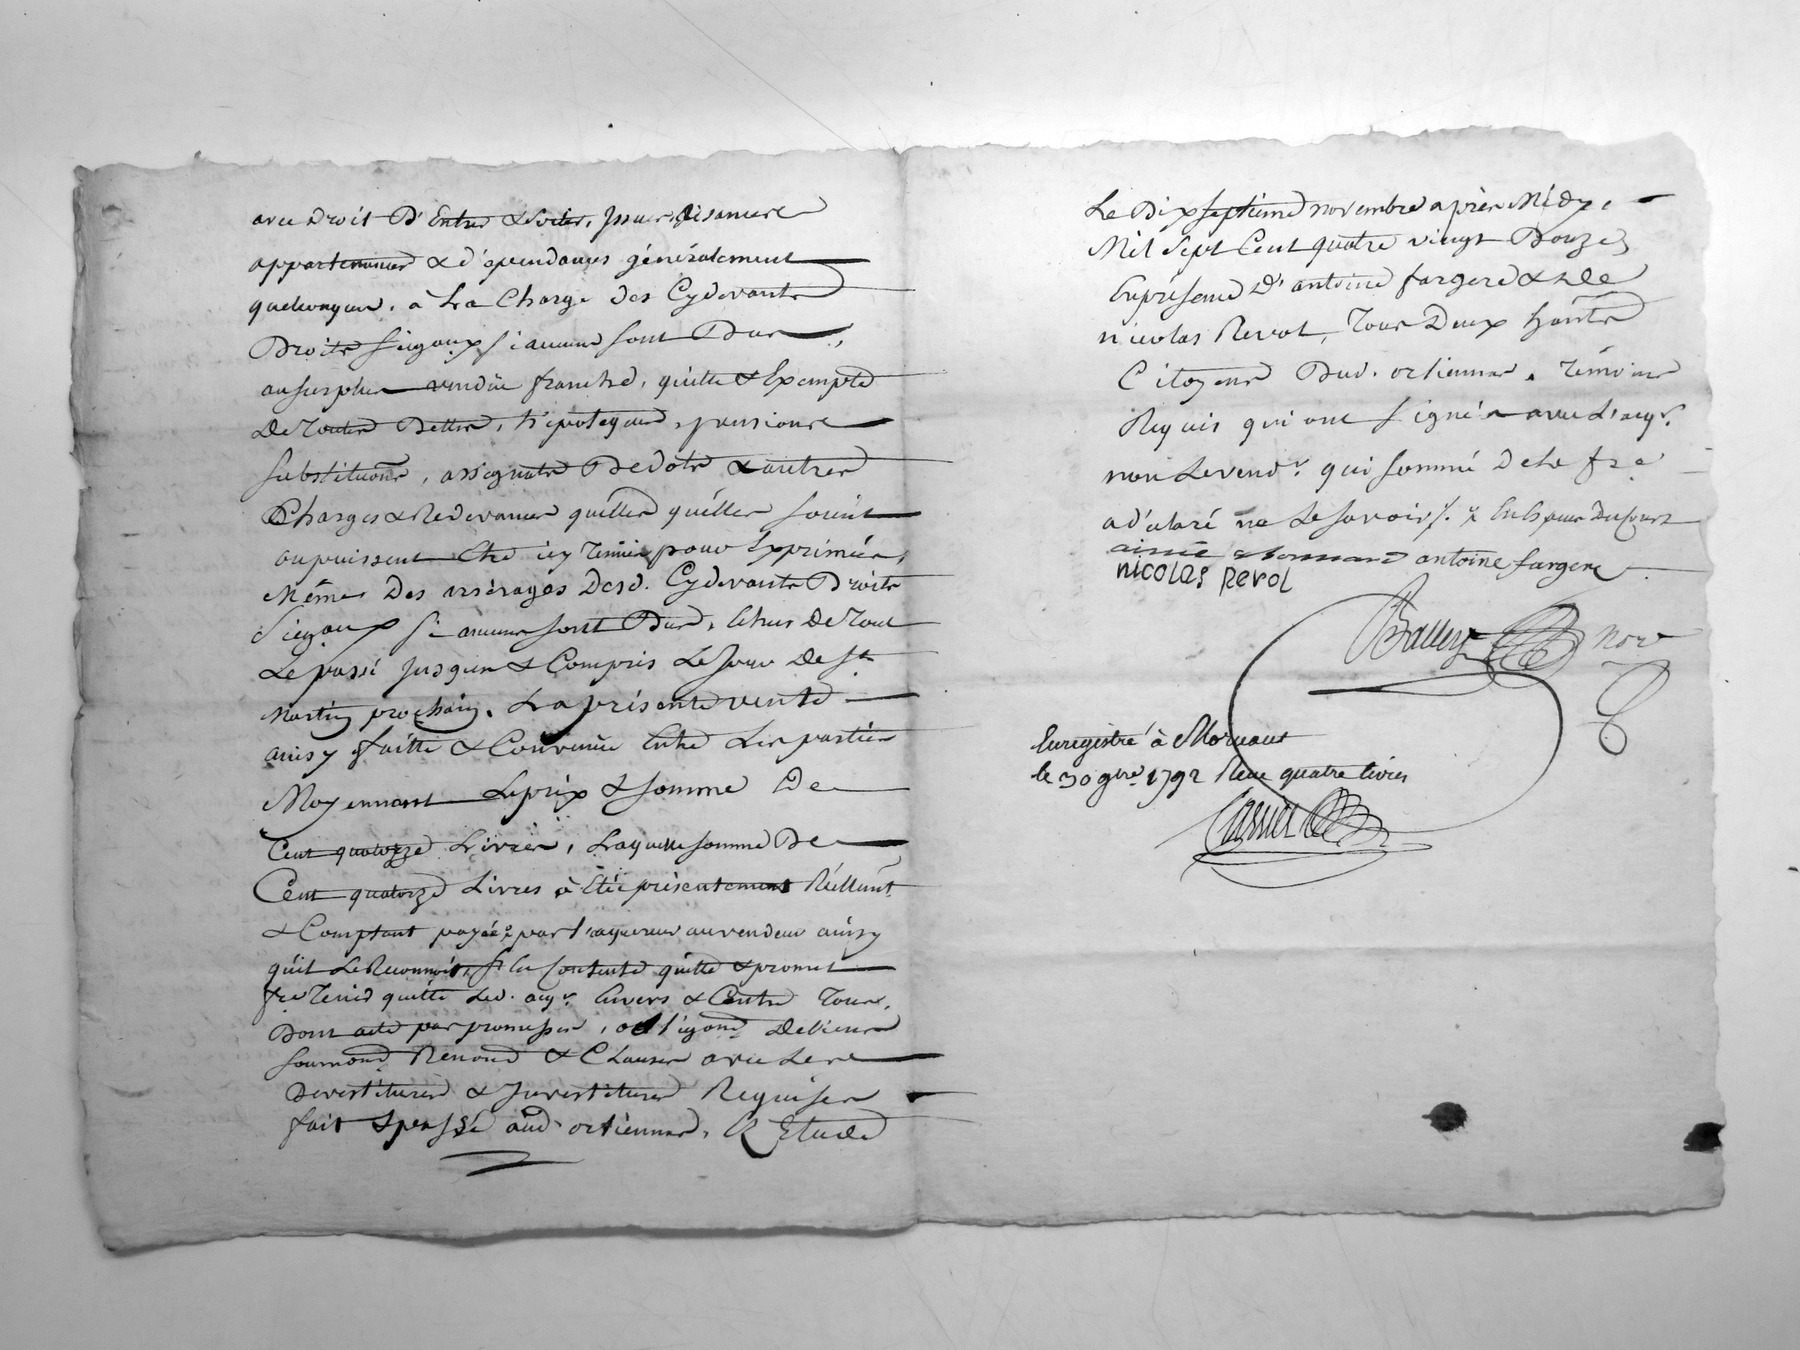 avec Droit D'Entrer & Sortir, Jssues Disances
appartenances & d'épendances généralement
quelconques. à La Charge des Cydevants
Droits Siegaux si aucuns sont Dus,
ausurplus vendüe franche, quitte & Exempte
De Toutes Dettes, hipoteques, pensions
Substitutions, assignats De dots & autres
Charges & Redevances quélles quélles soient
ou puissent Etre icy Tenües pour Exprimées,
Mémes Des arrérages Desd. Cydevants Droits
Siegaux si aucuns sont Dus, Echus De Tout
Le passé Jusques & Compris Le Jour De St.
Martin prochain. La présente vente
ainsy faitte & Convenüe Entre Les parties
Moyennant Le prix & somme De
Cent quatorze Livres, Laquelle somme De
Cent quatorze Livres à Etée présentement Réellemt.
& Comptant payée par l'aquereur au vendeur ainsy
qu'il Le Reconnoit, S'en Contente quitte & promet
fre Tenir quitte Led. aqr. Envers & Contre Tous.
Dont acte par promesses, obligaons De biens
soumons Renons & Clauses avec Les
Devestitures & Jnvestitures Requises
fait & passé aud. ortiennas, & Etude
Le Dix septieme novembre après Midy,
Mil Sept Cent quatre vingt Douze
En présence D'antoine fargere & De
nicolas Perrot, Tous Deux habts
Citoyens Dud. ortiennas, Témoins
Requis qui ont Signés avec L'aqr.
non Le vendr. qui sommé De Le fre
a d'claré ne Le savoir
antoine fargere
nicolas perol
Enregistré à Mornant
le 30 9bre. 1792 Reçu quatre livres